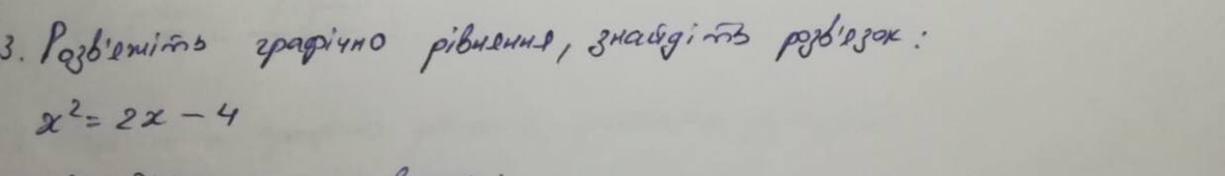 3. Розв'яжіть графічно рівняння, знайдіть розв'язок:
x² = 2x - 4